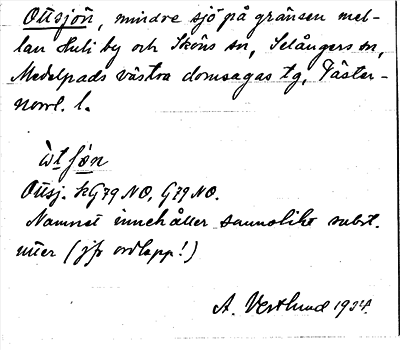 Ottsjön, mindre sjö på gränsen mel-
lan Huli by och Sköns sn, Selångers sn,
Medelpads västra domsagas tg, Väster-
norrl. l.
òtʃön
Ottsj. kG79NO, G79NO.
Namnet innehåller sannolikt subst.
utter (jfr ordlapp!)
A. Vestlund 1924.